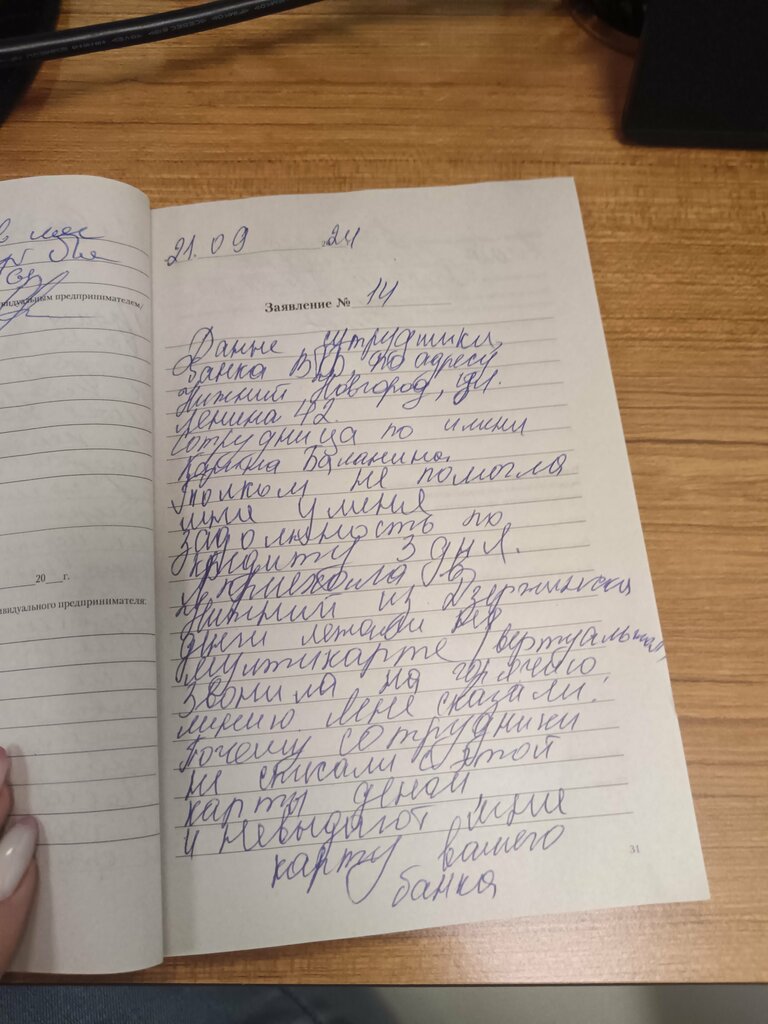 21.09 24
Заявление № 14
Данне сутрудники
Банка ВТБ, по адресу
Нижний Новгород, ул.
Ленина 42.
Сотрудница по имени
Карина Баланина.
Толком не помогла
мне у меня
задолжность по
кридиту 3 дня.
Я приехала в
Нижний из Дзержинска
динги лежали на
мултикарте вертуальная
Звонила на горячею
линию. Мне сказали:
Почему сотрудники
не списали с этой
карты деной
и невыдают мне
карту вашего
банка
31
видуальным предпринимателем/
20 г.
ивидуального предпринимателя: